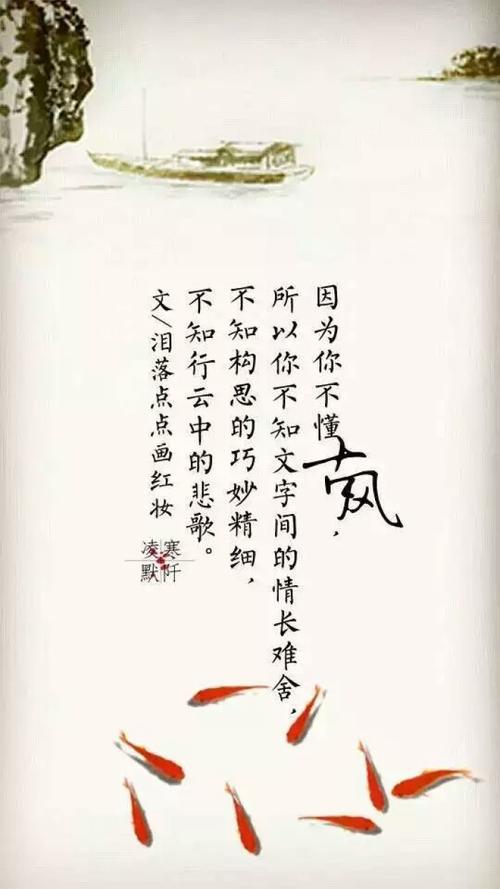 因为你不懂古风，
所以你不知文字间的情长难舍，
不知构思的巧妙精细，
不知行云中的悲歌。
文/泪落点点画红妆
凌寒
默阡